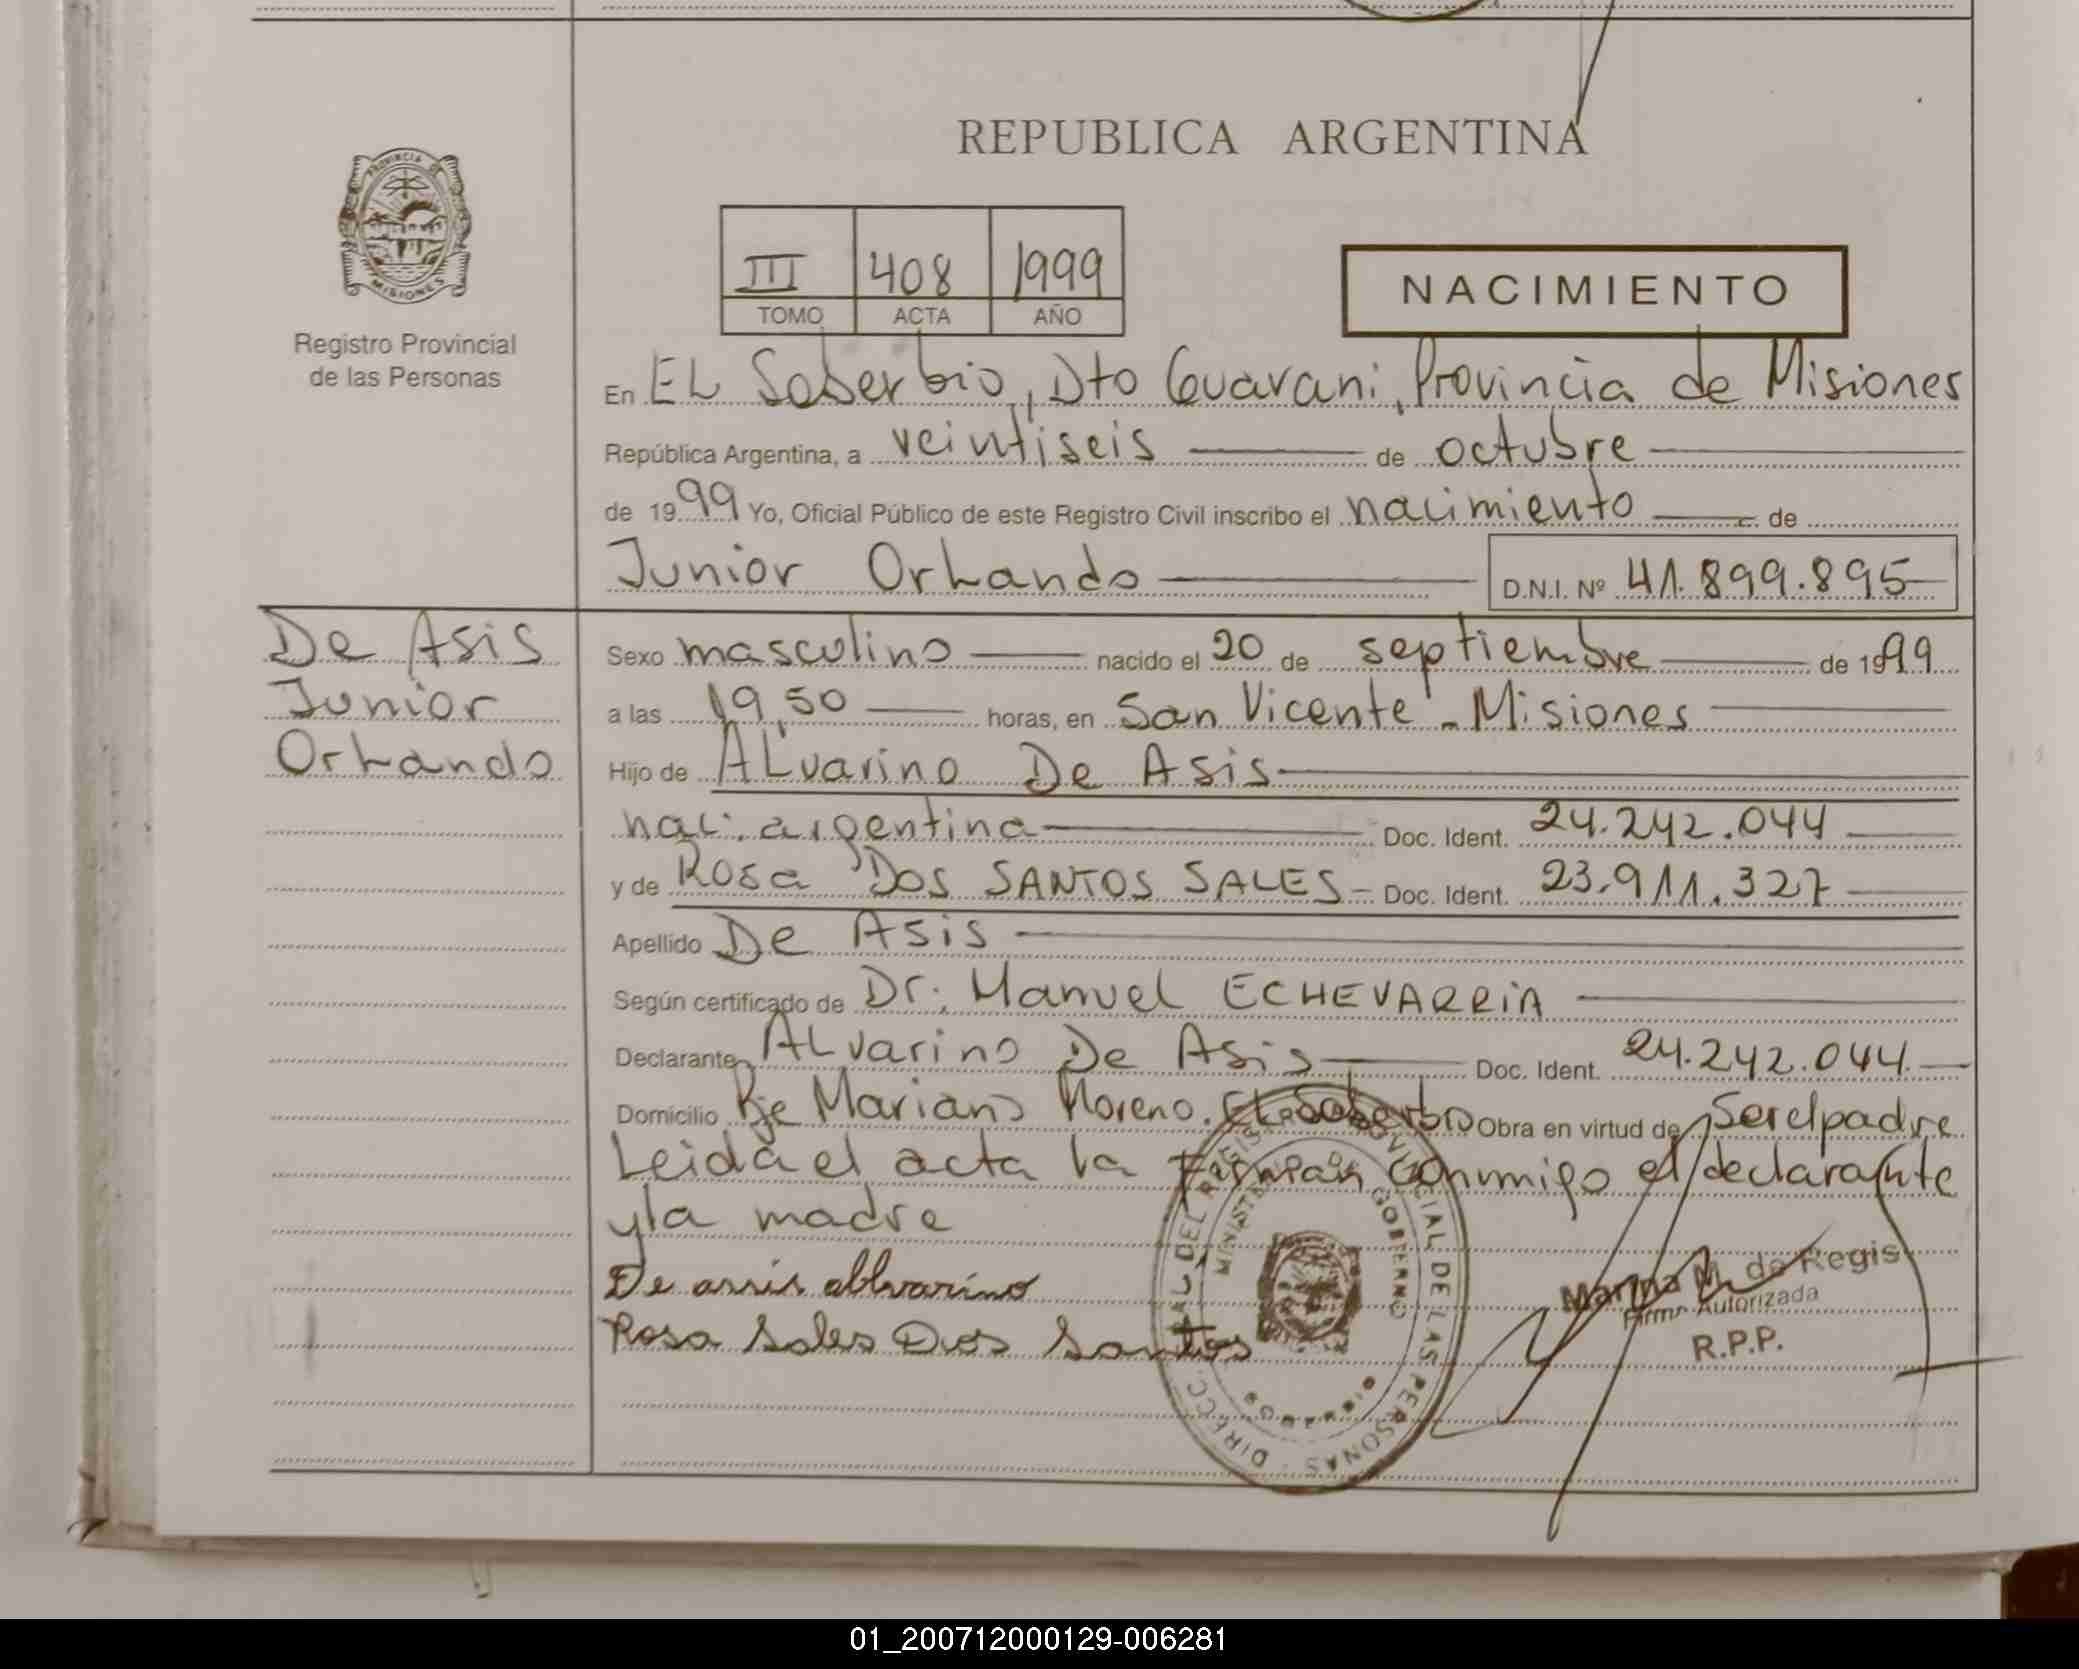 REPUBLICA ARGENTINA
PROVINCIA DE
MISIONES
Registro Provincial
de las Personas
III 408 1999
TOMO ACTA AÑO
NACIMIENTO
En EL Soberbio, Dto Guarani, Provincia de Misiones
República Argentina, a veintiseis de octubre
de 1999 Yo, Oficial Público de este Registro Civil inscribo el nacimiento de
Junior Orlando D.N.I. Nº 41.899.895
De Asis
Junior
Orlando
Sexo masculino nacido el 20 de septiembre de 1999
a las 19,50 horas, en San Vicente - Misiones
Hijo de ALvarino De Asis
nac. argentina Doc. Ident. 24.242.044
y de Rosa DOS SANTOS SALES - Doc. Ident. 23.911.327
Apellido De Asis
Según certificado de Dr. Manuel ECHEVARRIA
Declarante ALvarino De Asis Doc. Ident. 24.242.044
Domicilio Pje Mariano Moreno. El Soberbio Obra en virtud de Ser el padre
Leida el acta la firman conmigo el declarante
y la madre
De assis allvarino
Rosa Sales Dos Santos
DIRECC. GRAL. DEL REGISTRO PROVINCIAL DE LAS PERSONAS
MINISTERIO DE GOBIERNO
Marina M. de Regis
Firma Autorizada
R.P.P.
01_200712000129-006281